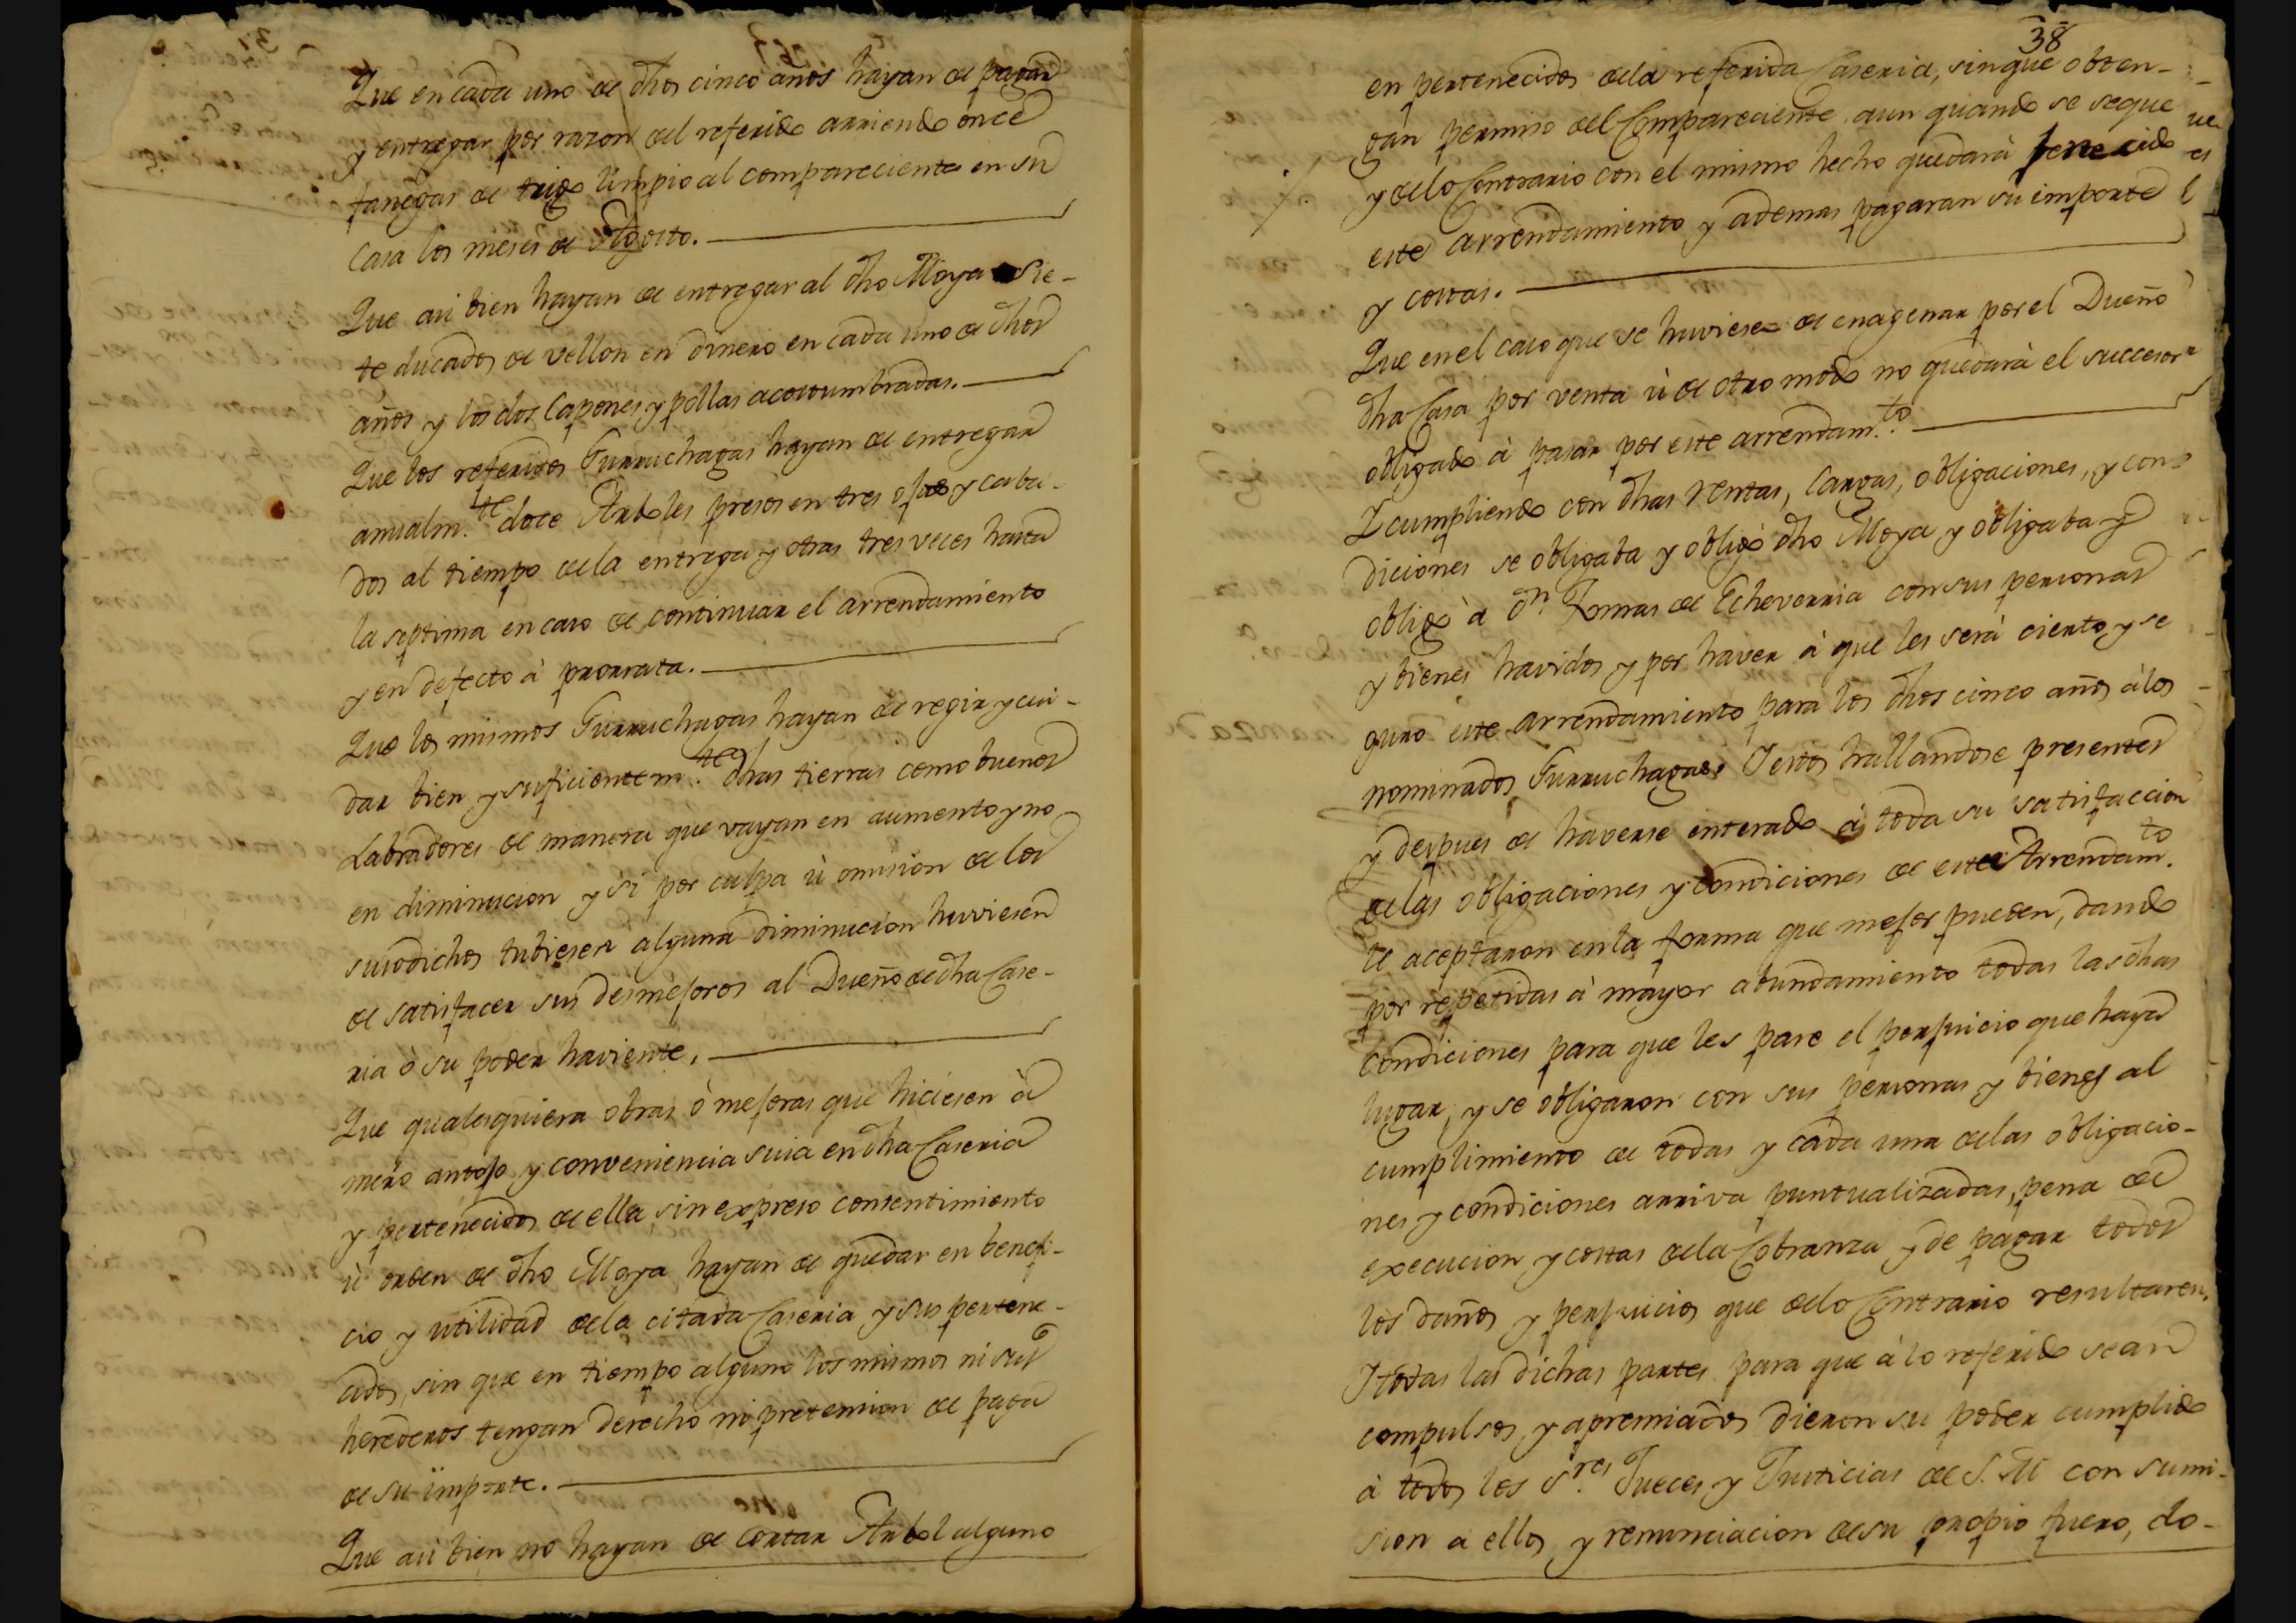 Que en cada uno de dhos cinco anos hayan de pagar
y entregar por razon del referido arriendo once
fanegas de trigo limpio al compareciente en su
Casa los meses de Agosto.
Que asi bien hayan de entregar al dho Moya sie-
te ducados de vellon en dinero en cada uno de dhos
años y los dos Capones y pollas acostumbradas.
Que los referidos Gurruchagas hayan de entregar
anualm.te doce Arboles presos en tres ojas y caba-
dos al tiempo de la entrega y otras tres veces hasta
la septima en caso de continuar el arrendamiento
y en defecto à prorrata.
Que los mismos Gurruchagas hayan de regir y cui-
dar bien y suficientem.te dhas tierras como buenos
Labradores de manera que vayan en aumento y no
en diminucion y si por culpa ù omision de los
susodichos tubiesen alguna diminucion huviesen
de satisfacer sus desmejoros al Dueño de dha Case-
ria ò su poder haviente.
Que qualesquiera obras ò mejoras que hiciesen à
mero antojo y conveniencia suia en dha Caseria
y pertenecidos de ella sin expreso consentimiento
ù orden de dho Moya hayan de quedar en benefi-
cio y utilidad de la citada Caseria y sus pertene-
cidos, sin que en tiempo alguno los mismos ni sus
herederos tengan derecho ni pretension de paga
de su importe.
Que asi bien no hayan de cortar Arbol alguno
38
en pertenecidos de la referida Caseria, sin que obten-
gan permiso del Compareciente aun quando se seque
y de lo Contrario con el mismo hecho quedarà fenecido
este arrendamiento y ademas pagaran su importe
y costas.
Que en el caso que se huviese de enagenar por el Dueño
dha Casa por venta ù de otro modo no quedarà el succesor
obligado à pasar por este arrendam.to
I cumpliendo con dhas rentas, Cargas, obligaciones, y con-
diciones se obligaba y obligò dho Moya y obligaba y
obligò à dn. Tomas de Echeverria con sus personas
y bienes havidos y por haver à que les serà cierto y se
guro este arrendamiento para los dhos cinco años à los
nominados Gurruchagas. I estos hallandose presentes
y despues de haverse enterado à toda su satisfaccion
de las obligaciones y condiciones de este Arrendam.to
le aceptaron en la forma que mejor pueden, dando
por repetidas à mayor abundamiento todas las dhas
Condiciones para que les pare el perjuicio que haya
lugar, y se obligaron con sus personas y bienes al
cumplimiento de todas y cada una de las obligacio-
nes y condiciones arriva puntualizadas, pena de
execucion y costas de la Cobranza y de pagar todos
los daños y perjuicios que de lo Contrario resultaren.
I todas las dichas partes para que à lo referido sean
compulsos y apremiados dieron su poder cumplido
à todos los S.res Jueces y Justicias de S. M. con sumi-
sion a ellos y renunciacion de su propio fuero, do-